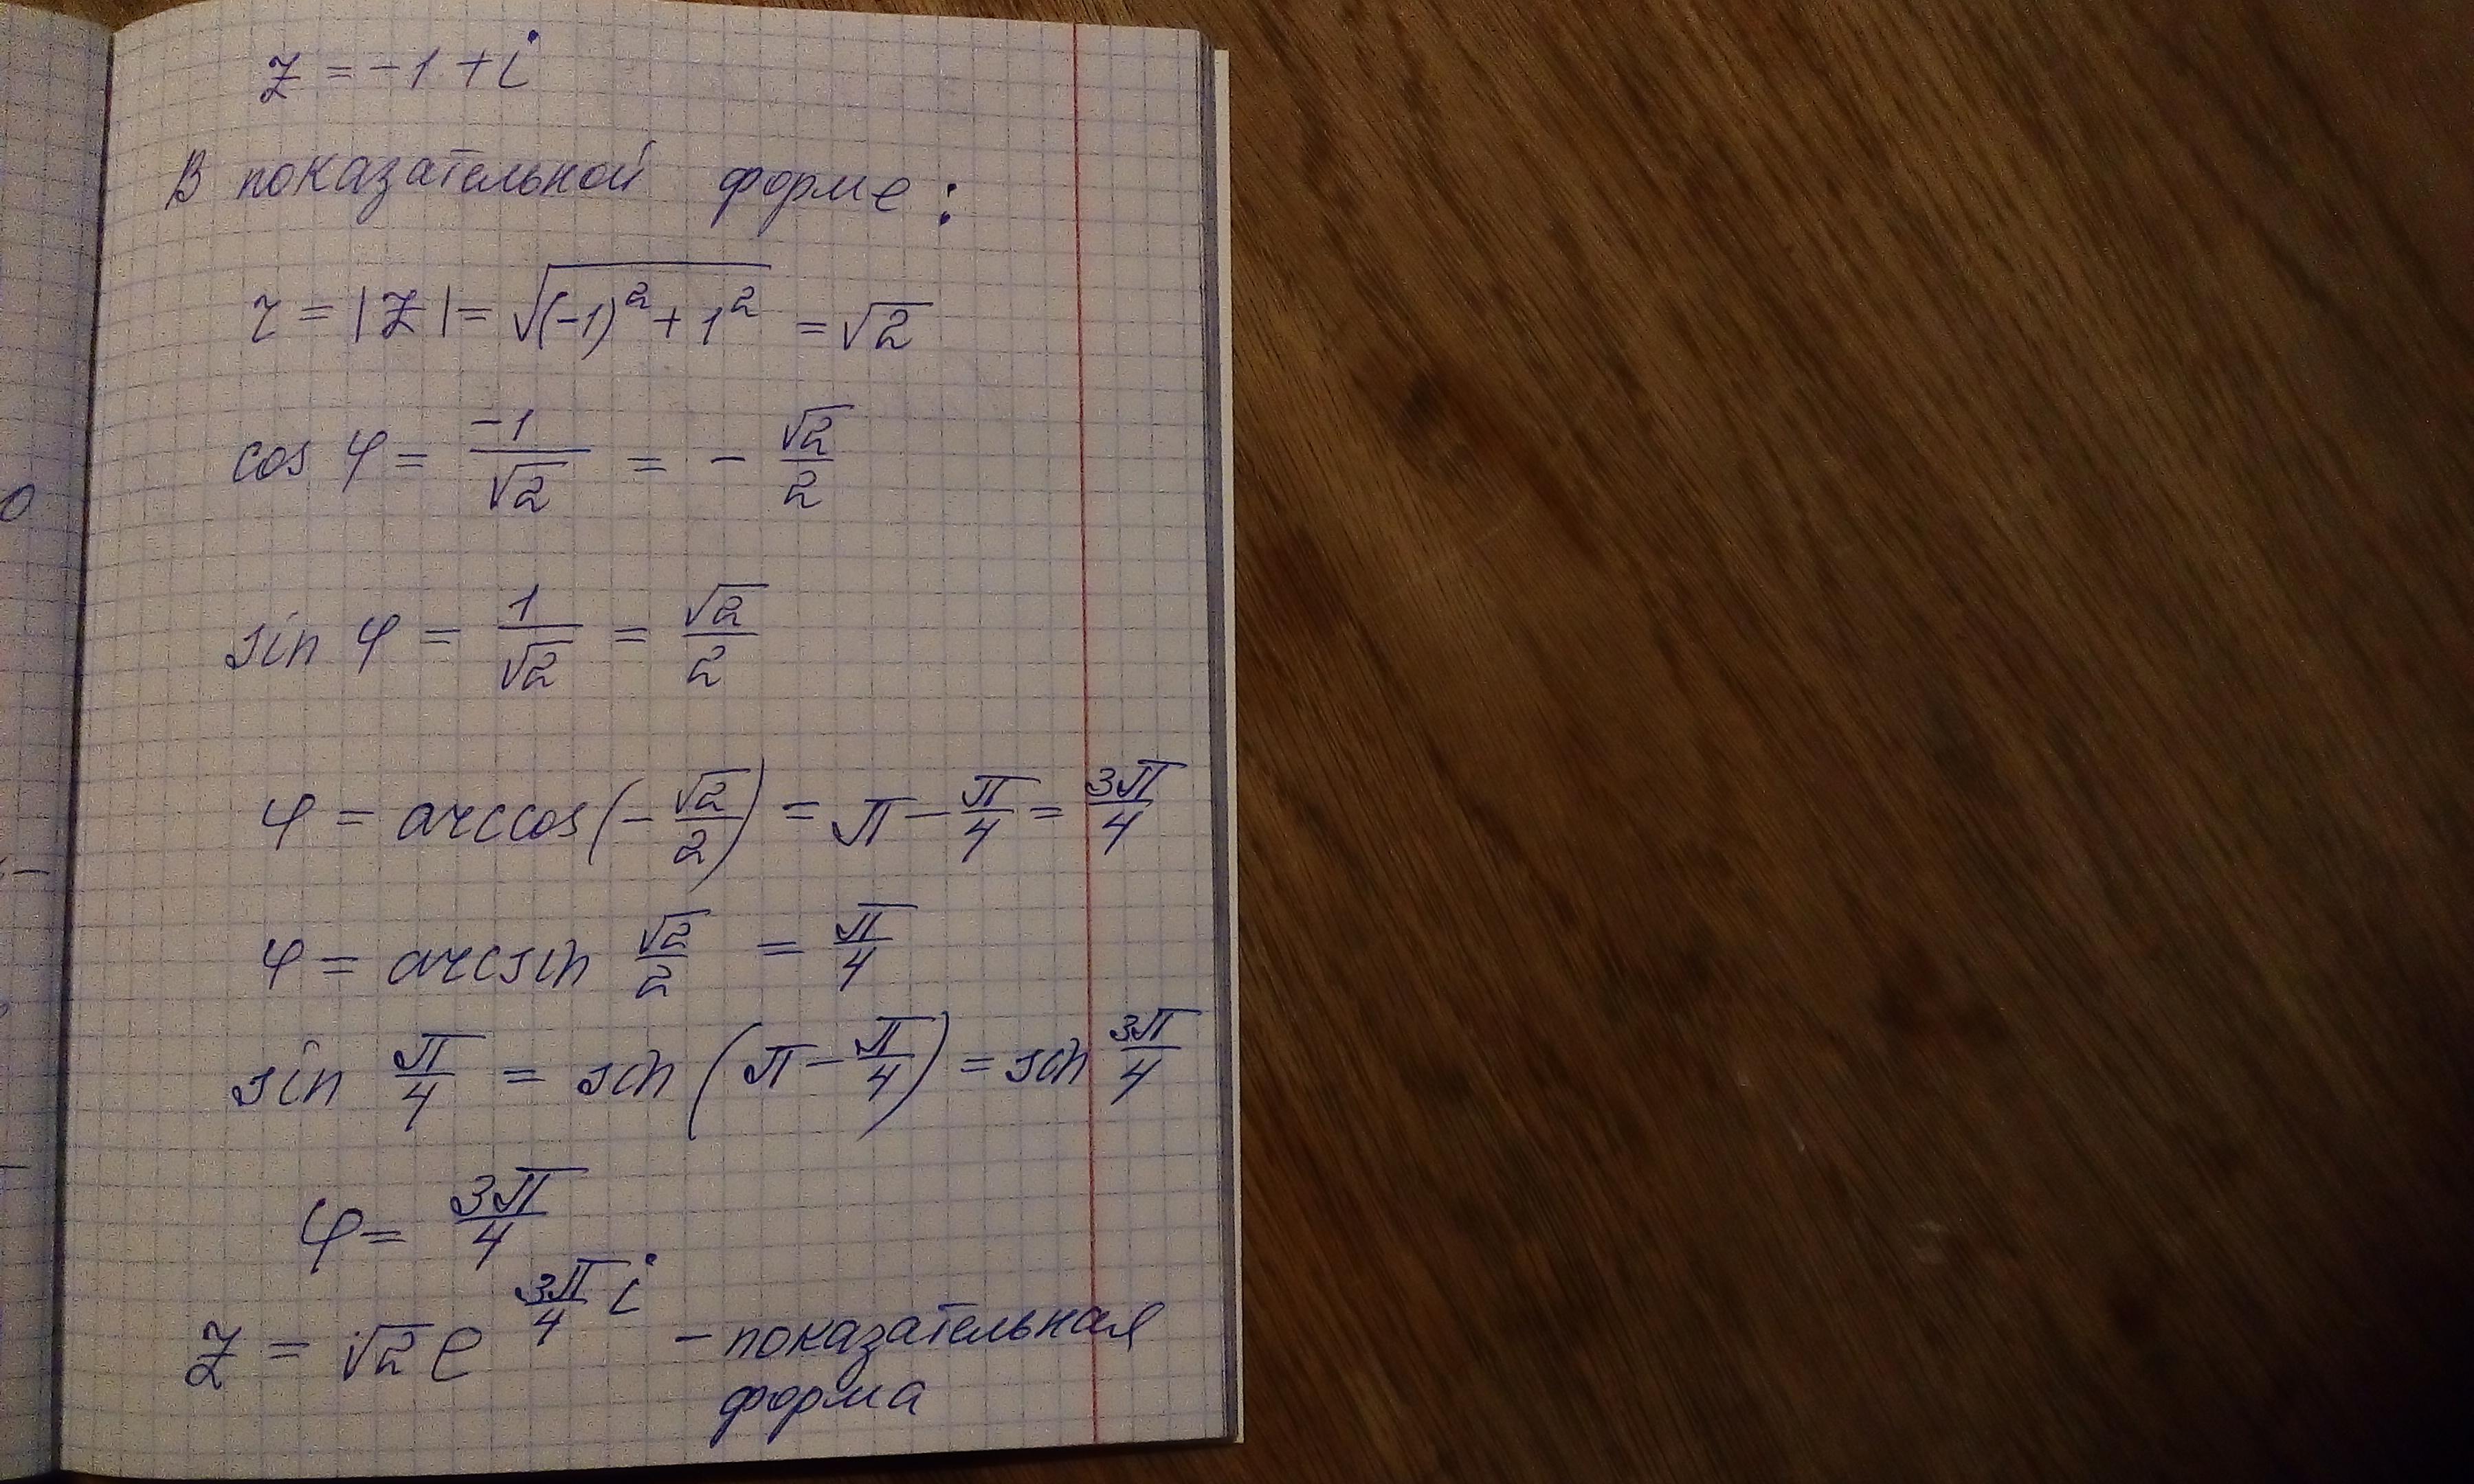 z = -1 + i
В показательной форме:
r = |z| = √((-1)² + 1²) = √2
cos φ = -1/√2 = - √2/2
sin φ = 1/√2 = √2/2
φ = arccos(- √2/2) = π - π/4 = 3π/4
φ = arcsin √2/2 = π/4
sin π/4 = sin (π - π/4) = sin 3π/4
φ = 3π/4
z = √2 e^(3π/4 i) - показательная
форма